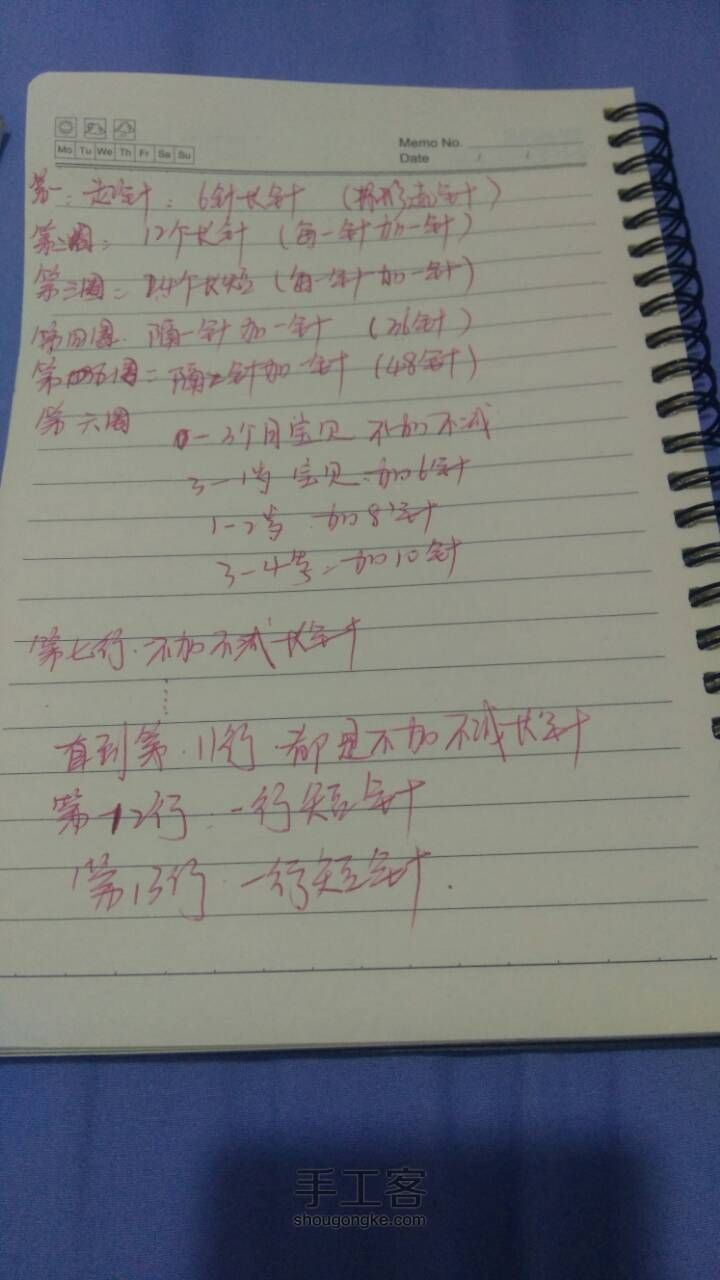 Memo No.
Mo Tu We Th Fr Sa Su
Date / /
第一：起针：6针长针 （环形起针）
第二圈：12个长针 （每一针加一针）
第三圈：24个长短 （每一针加一针）
第四圈．隔一针加一针 （36针）
第五圈：隔2针加一针 （48针）
第六圈
0－3个月宝贝 不加不减
3－1岁宝贝．加6针
1－2岁．加8针
3－4岁．加10针
第七行．不加不减长针
……
直到第．11行．都是不加不减长针
第12行．一行短针
第13行．一行短针．
手工客
shougongke.com